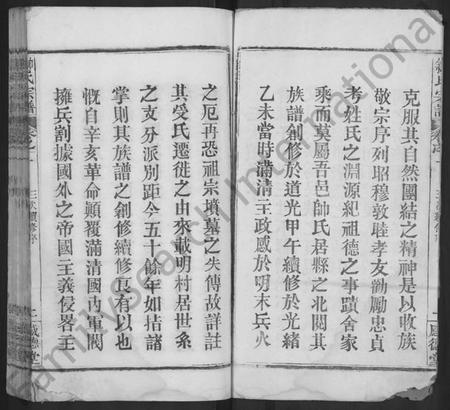 克服其自然團結之精神是以收族
敬宗序列昭穆敦睦孝友勸勵忠貞
考姓氏之淵源紀祖德之事蹟舍家
乘而莫屬吾邑帥氏居縣之北閱其
族譜創修於道光甲午續修於光緒
乙未當時滿清王政感於明末兵火
之厄再恐祖宗墳墓之失傳故詳註
其受氏遷徙之由來載明村居世系
之支分派別距今五十餘年如指諸
掌則其族譜之創修續修良有以也
慨自辛亥革命顛覆滿清國內軍閥
擁兵割據國外之帝國主義侵畧主
帥氏宗譜
三次續修序
二
咸德堂
FamilySearch International